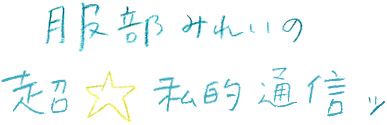 服部みれいの
超☆私的通信ッ